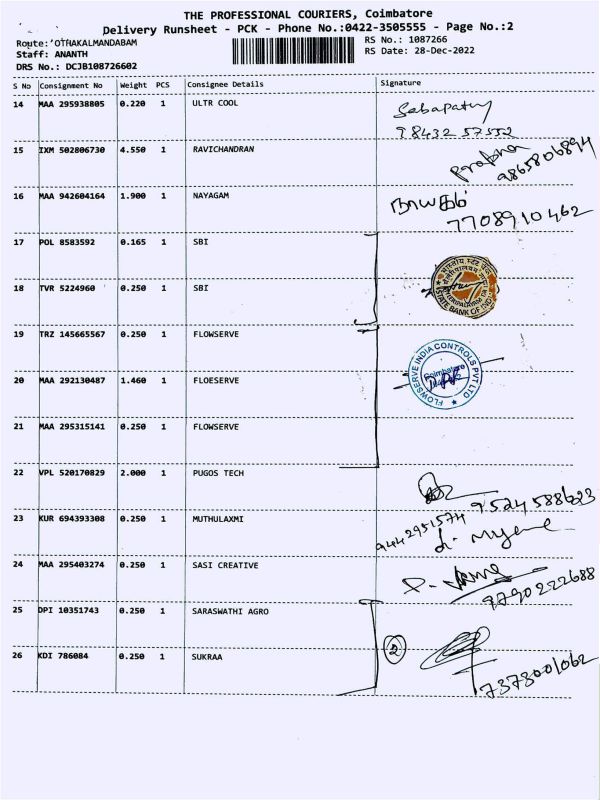 THE PROFESSIONAL COURIERS, Coimbatore
Delivery Runsheet - PCK - Phone No.:0422-3505555 - Page No.:2
Route:'OTHAKALMANDABAM
Staff: ANANTH
DRS No.: DCJB108726602
RS No.: 1087266
RS Date: 28-Dec-2022
S No Consignment No Weight PCS Consignee Details Signature
14 MAA 295938805 0.220 1 ULTR COOL Sabapathy
98432 57552
15 IXM 502806730 4.550 1 RAVICHANDRAN Prabha
9865806894
16 MAA 942604164 1.900 1 NAYAGAM நாயகம்
7708910462
17 POL 8583592 0.165 1 SBI
18 TVR 5224960 0.250 1 SBI
STATE BANK OF INDIA
19 TRZ 145665567 0.250 1 FLOWSERVE
FLOWSERVE INDIA CONTROLS PVT LTD
Coimbatore
20 MAA 292130487 1.460 1 FLOESERVE
21 MAA 295315141 0.250 1 FLOWSERVE
22 VPL 520170829 2.000 1 PUGOS TECH
9524588623
23 KUR 694393308 0.250 1 MUTHULAXMI 9442951574
24 MAA 295403274 0.250 1 SASI CREATIVE
9790222688
25 DPI 10351743 0.250 1 SARASWATHI AGRO
26 KDI 786084 0.250 1 SUKRAA 2
7373001062